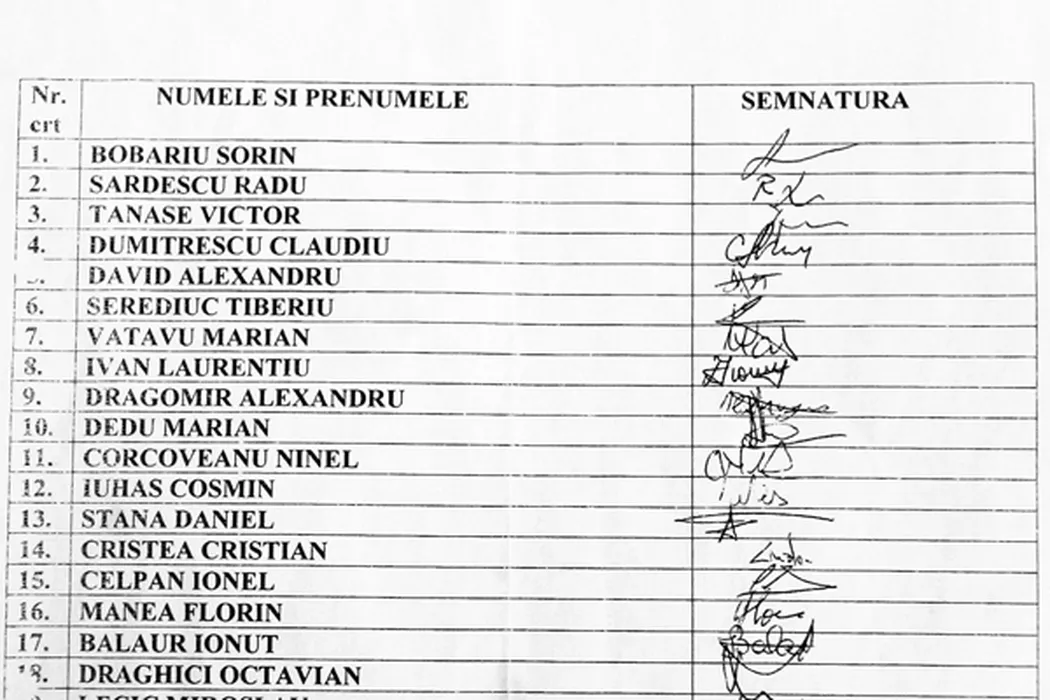 Nr. NUMELE SI PRENUMELE SEMNATURA
crt
1. BOBARIU SORIN
2. SARDESCU RADU
3. TANASE VICTOR
4. DUMITRESCU CLAUDIU
DAVID ALEXANDRU
6. SEREDIUC TIBERIU
7. VATAVU MARIAN
8. IVAN LAURENTIU
9. DRAGOMIR ALEXANDRU
10. DEDU MARIAN
11. CORCOVEANU NINEL
12. IUHAS COSMIN
13. STANA DANIEL
14. CRISTEA CRISTIAN
15. CELPAN IONEL
16. MANEA FLORIN
17. BALAUR IONUT
18. DRAGHICI OCTAVIAN